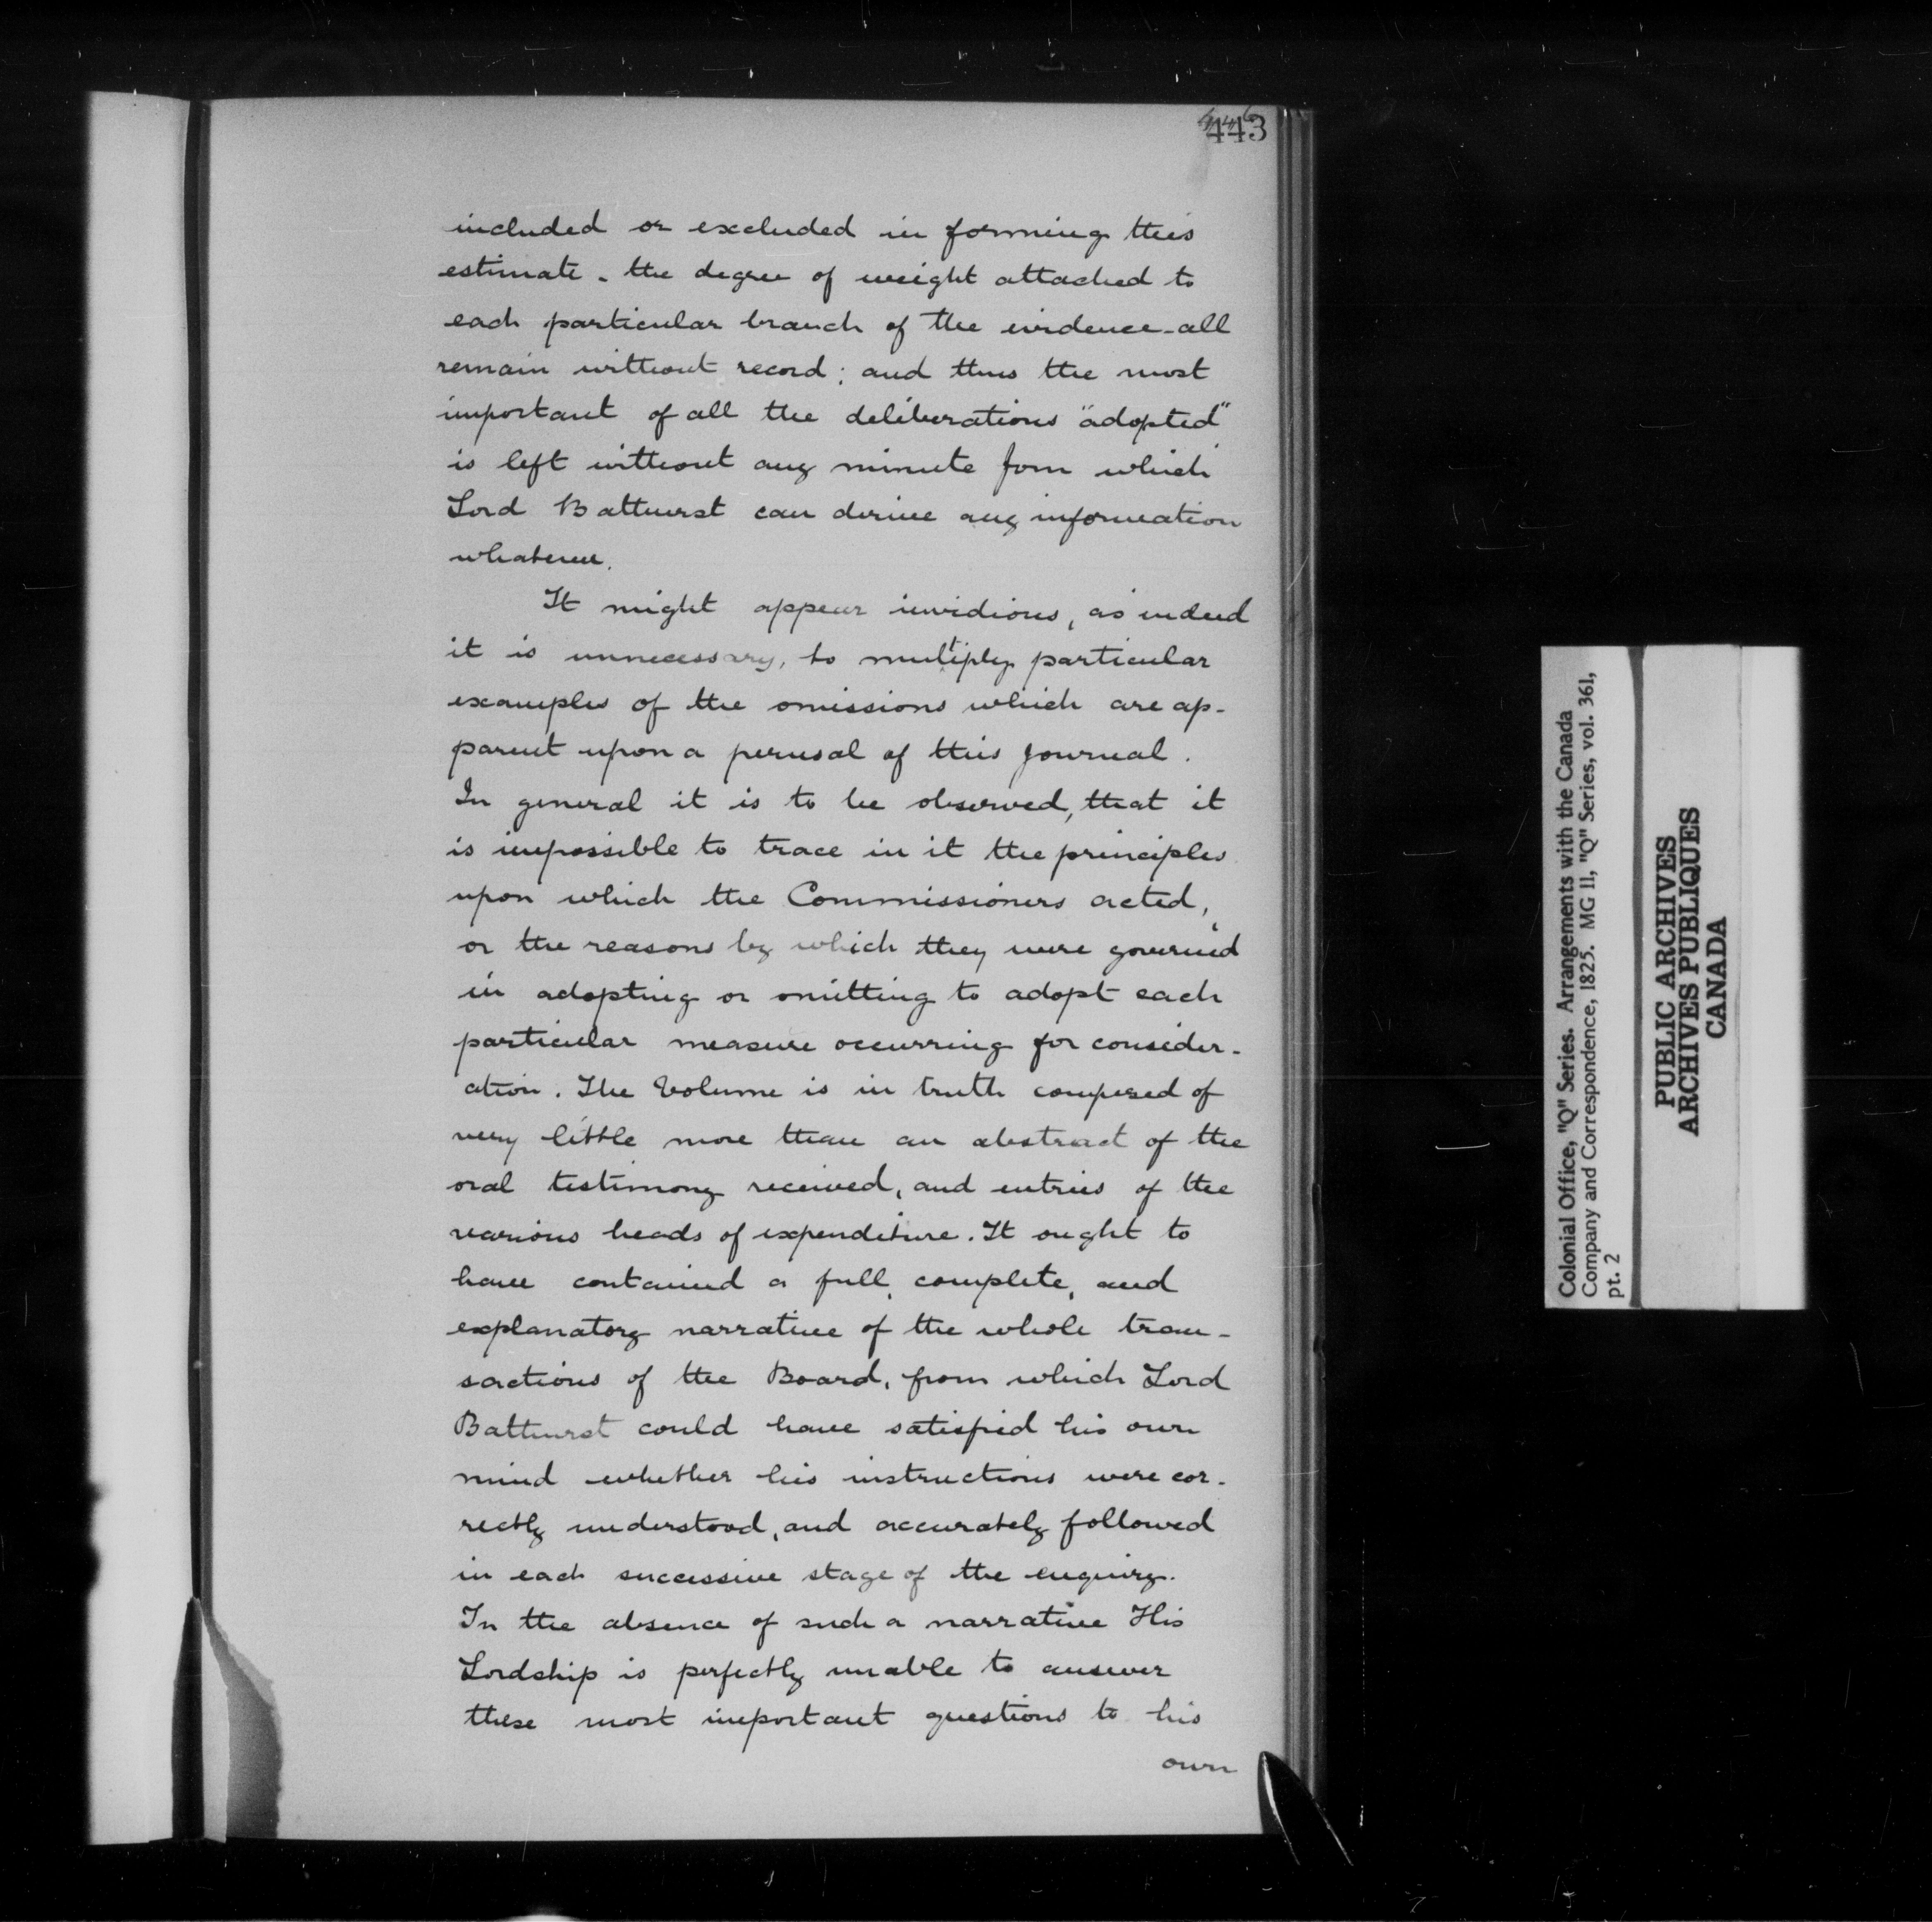 443
included or excluded in forming this
estimate - the degree of weight attached to
each particular branch of the evidence - all
remain without record; and thus the most
important of all the deliberations "adopted"
is left without any minute from which
Lord Bathurst can derive any information
whatever.
It might appear invidious, as indeed
it is unnecessary, to multiply particular
examples of the omissions which are ap-
parent upon a perusal of this Journal.
In general it is to be observed, that it
is impossible to trace in it the principles
upon which the Commissioners acted,
or the reasons by which they were governed
in adopting or omitting to adopt each
particular measure occurring for consider-
ation. The Volume is in truth composed of
very little more than an abstract of the
oral testimony received, and entries of the
various heads of expenditure. It ought to
have contained a full, complete, and
explanatory narrative of the whole tran-
sactions of the Board, from which Lord
Bathurst could have satisfied his own
mind whether his instructions were cor-
rectly understood, and accurately followed
in each successive stage of the enquiry.
In the absence of such a narrative His
Lordship is perfectly unable to answer
these most important questions to his
own
Colonial Office, "Q" Series. Arrangements with the Canada
Company and Correspondence, 1825. MG 11, "Q" Series, vol. 361,
pt. 2
PUBLIC ARCHIVES
ARCHIVES PUBLIQUES
CANADA